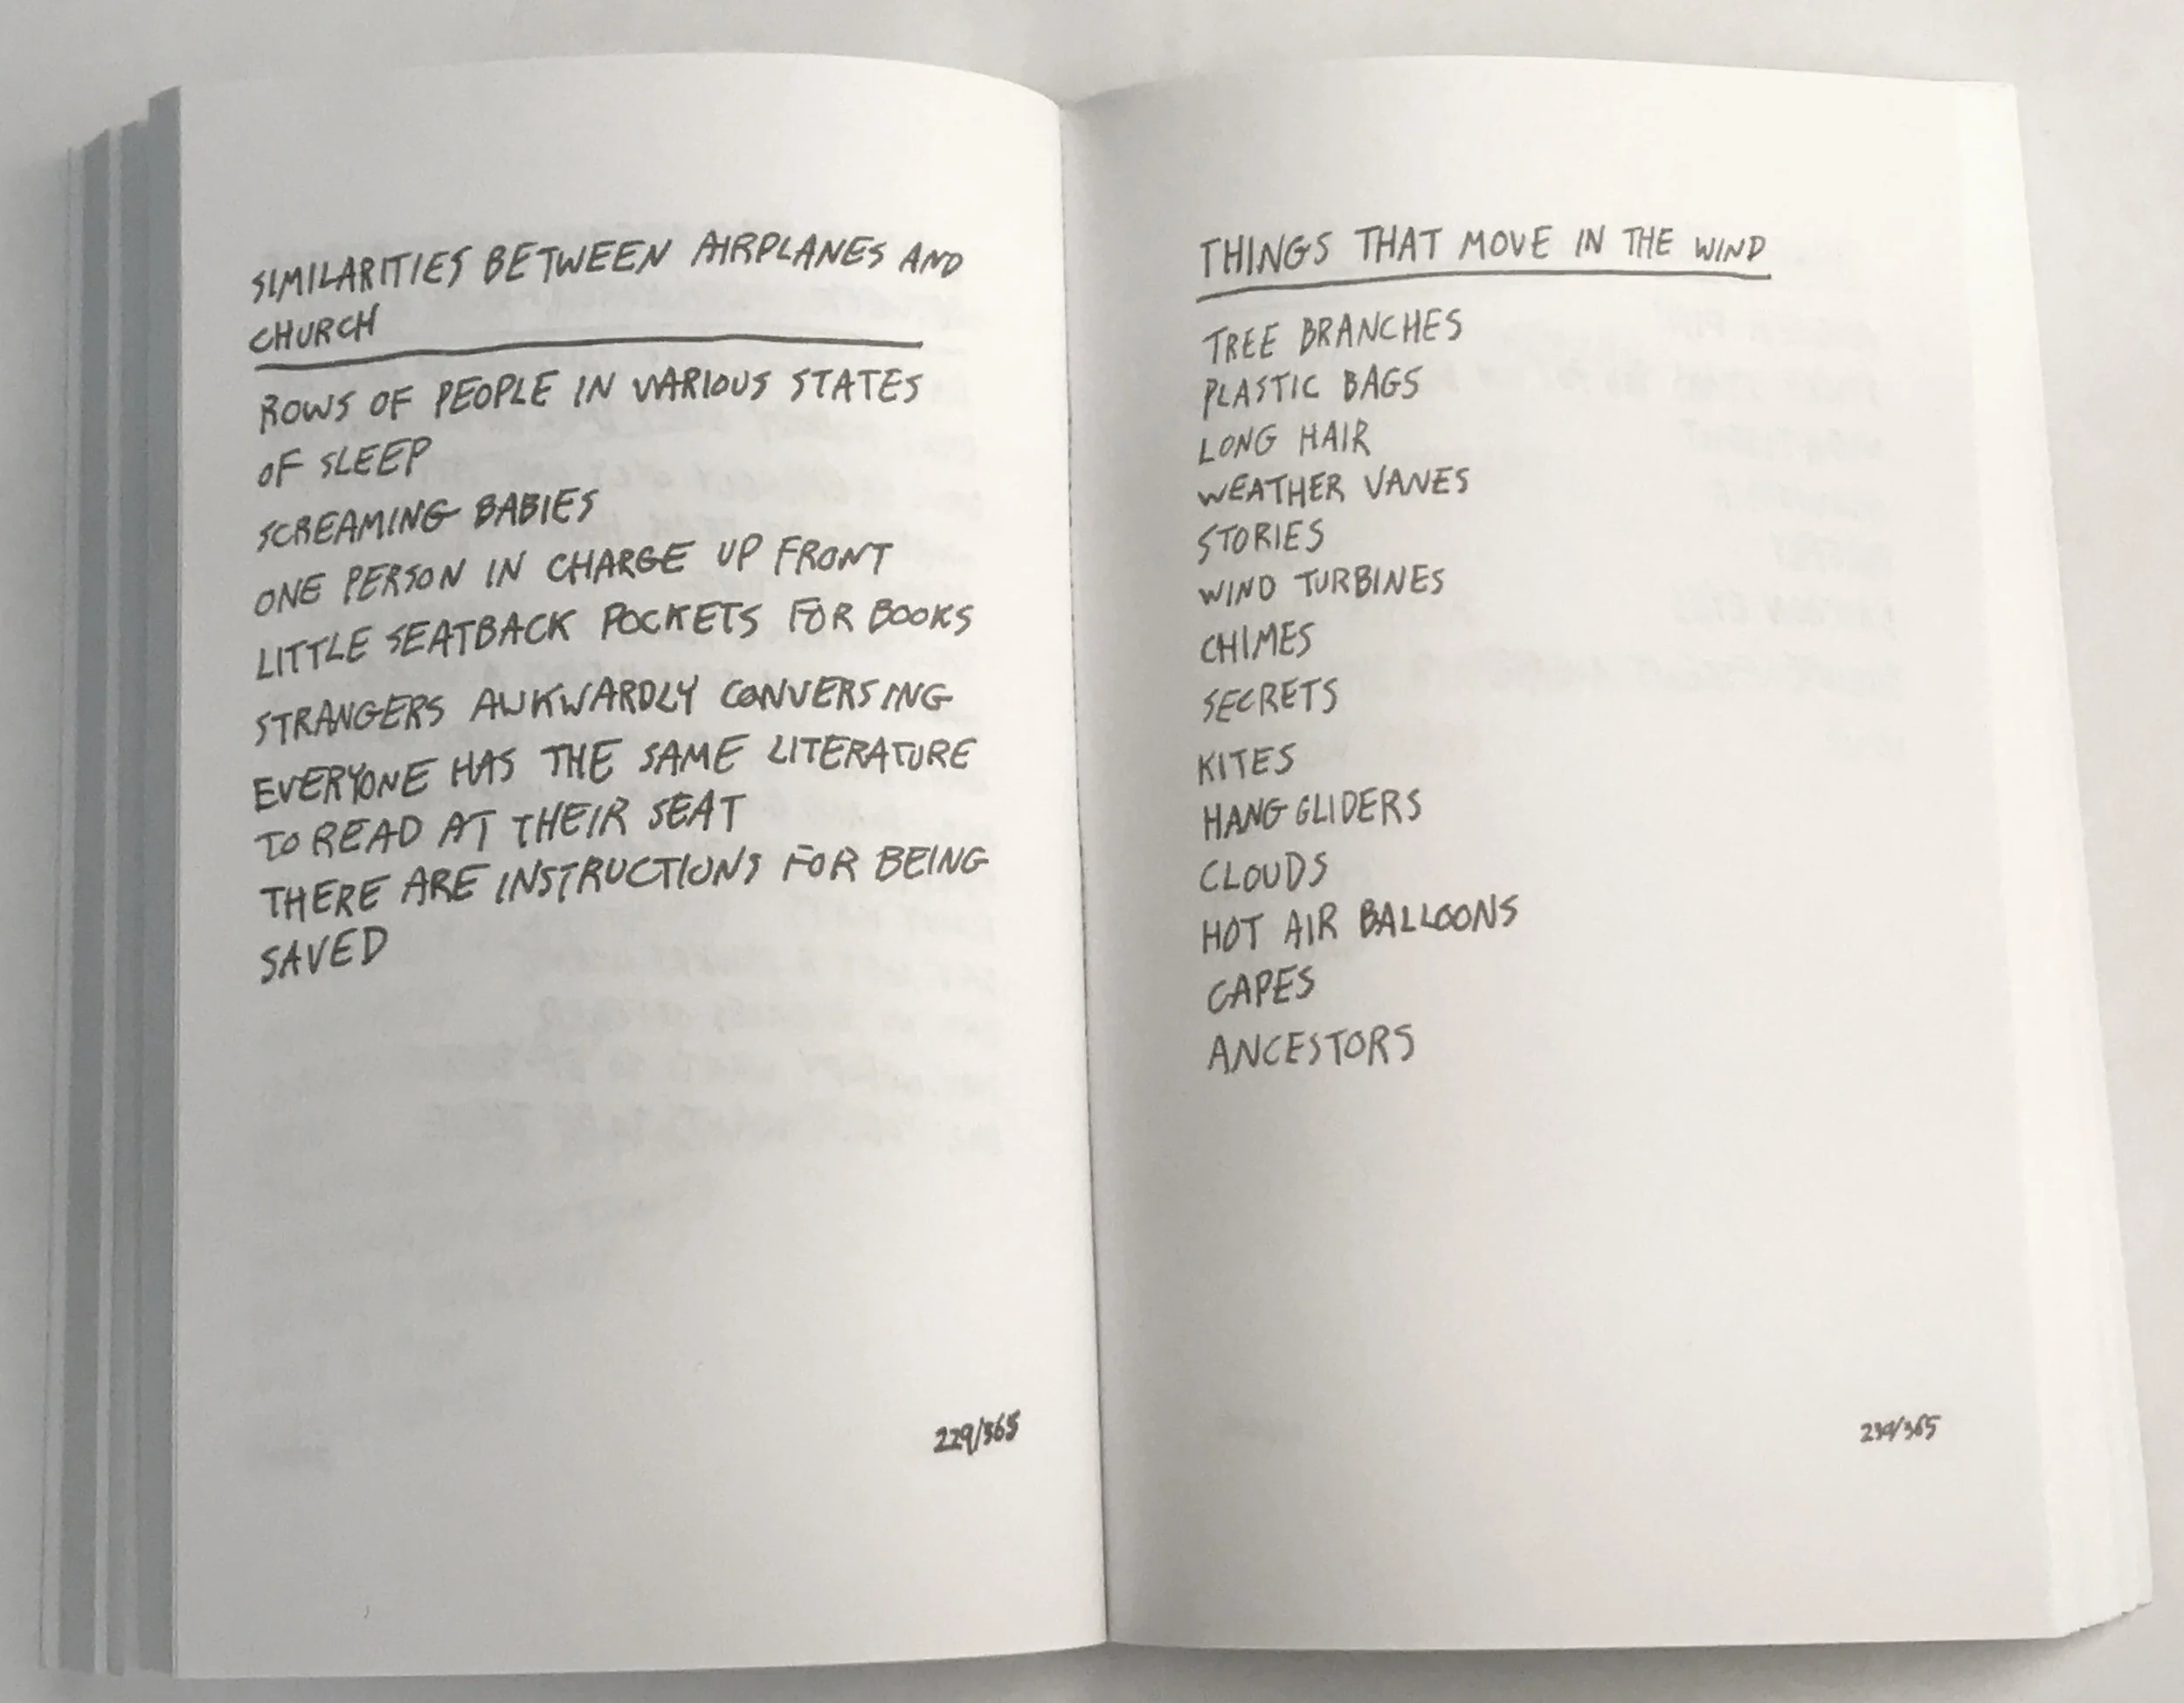 SIMILARITIES BETWEEN AIRPLANES AND
CHURCH
ROWS OF PEOPLE IN VARIOUS STATES
OF SLEEP
SCREAMING BABIES
ONE PERSON IN CHARGE UP FRONT
LITTLE SEATBACK POCKETS FOR BOOKS
STRANGERS AWKWARDLY CONVERSING
EVERYONE HAS THE SAME LITERATURE
TO READ AT THEIR SEAT
THERE ARE INSTRUCTIONS FOR BEING
SAVED
229/365
THINGS THAT MOVE IN THE WIND
TREE BRANCHES
PLASTIC BAGS
LONG HAIR
WEATHER VANES
STORIES
WIND TURBINES
CHIMES
SECRETS
KITES
HANG GLIDERS
CLOUDS
HOT AIR BALLOONS
CAPES
ANCESTORS